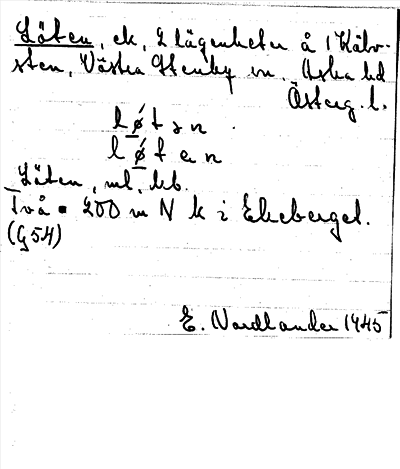 Löten, ek, 2 lägenheter å 1 Kälv-
sten, Västra Stenby sn. Aska hd
Österg. l.
l ǿ t ə n
l ǿ t e n
Löten, ml. kb.
Två 200 m N k i Ekeberget.
(G54)
E. Nordlander 1945